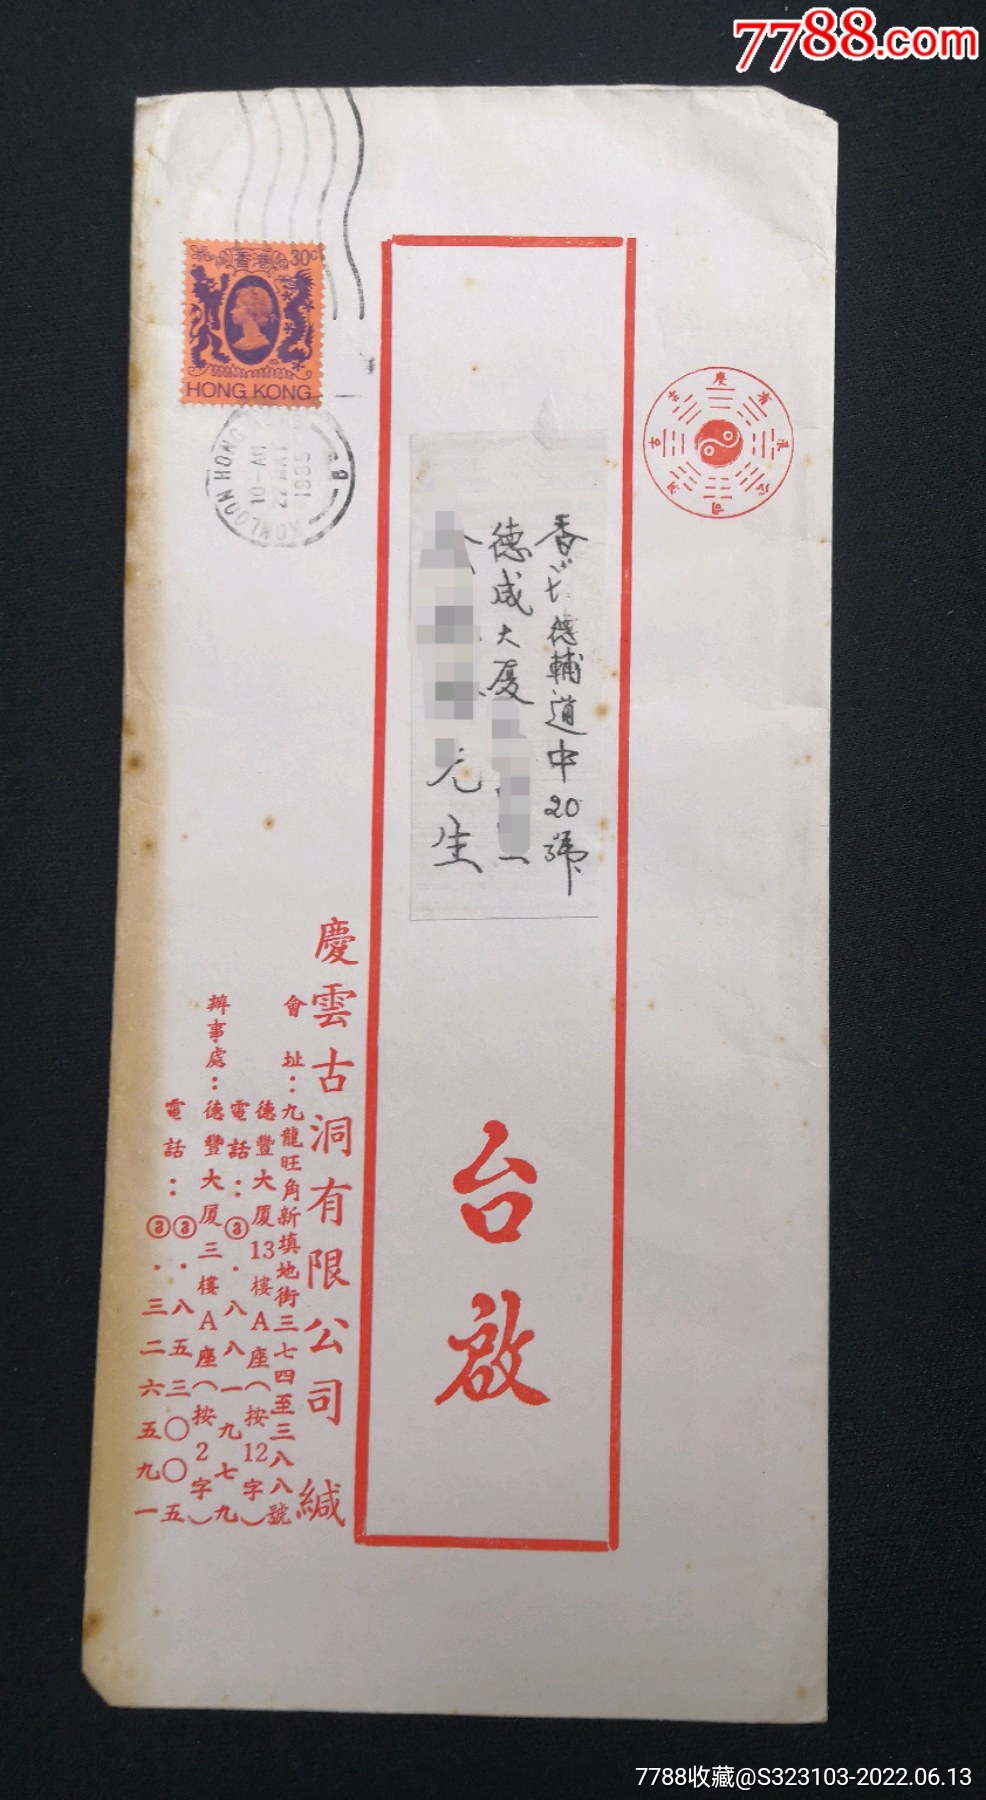 7788.com
香港 30c
HONG KONG
KOWLOON HONG KONG
10-AM
1985
B
慶雲古洞有限公司
香港德輔道中20號
德成大廈
先生
台啟
慶雲古洞有限公司 緘
會址：九龍旺角新填地街三七四至三八八號
德豐大廈13樓A座（按12字）
電話：③．八八一九七九
辦事處：德豐大厦三樓A座（按2字）
電話：③．八五三〇〇五
③．三二六五九一
7788收藏@S323103-2022.06.13